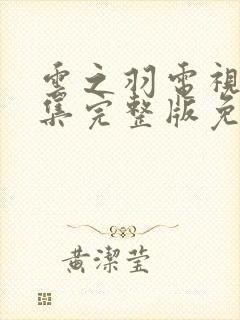 雲之羽電視
集完整版免
黃潔瑩